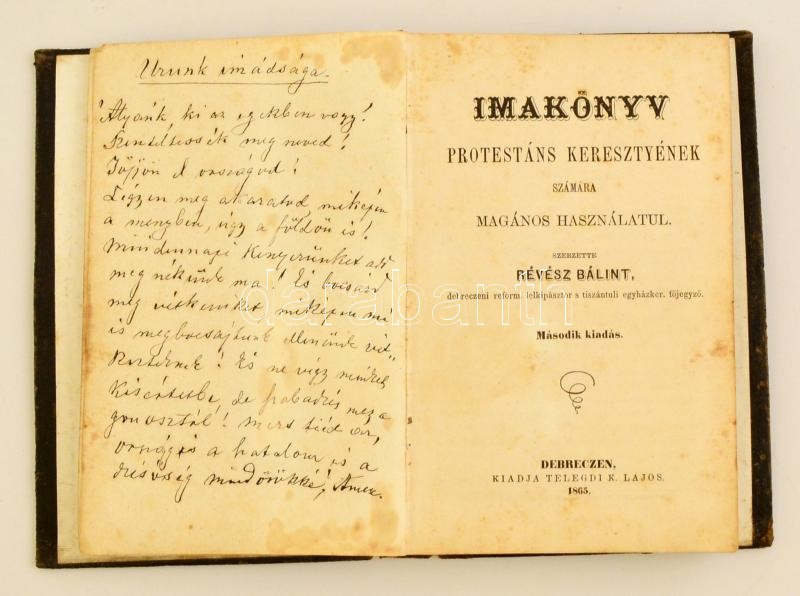 Urunk imádsága.
Atyánk, ki az egekben vagy!
Szenteltessék meg neved!
Jöjjön el országod!
Légyen meg akaratod, miképen
a menyben, úgy a földön is!
Mindennapi kenyerünket add
meg nékünk ma! És bocsásd
meg vétkeinket, miképen mi
is megbocsájtunk ellenünk vét-
kezteknek! És ne vigy minket
kisértetbe, de szabadíts meg a
gonosztól! Mert tiéd az
ország és a hatalom és a
dicsőség mindörökké, Amen.
IMAKÖNYV
PROTESTÁNS KERESZTYÉNEK
SZÁMÁRA
MAGÁNOS HASZNÁLATUL.
SZERZETTE
RÉVÉSZ BÁLINT,
debreczeni reform. lelkipásztor s tiszántuli egyházker. főjegyző.
Második kiadás.
DEBRECZEN,
KIADJA TELEGDI K. LAJOS.
1865.
darabanth